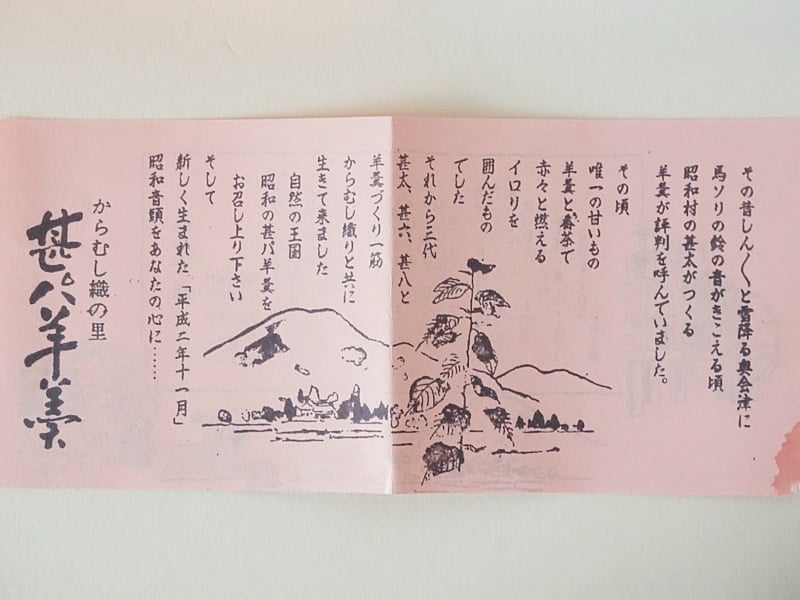 その昔しん〱と雪降る奥会津に
馬ソリの鈴の音がきこえる頃
昭和村の甚太がつくる
羊羹が評判を呼んでいました。
その頃
唯一の甘いもの
羊羹と番茶で
赤々と燃える
イロリを
囲んだもの
でした
それから三代
甚太、甚六、甚八と
羊羹づくり一筋
からむし織りと共に
生きて来ました
自然の王国
昭和の甚パ羊羹を
お召し上り下さい
そして
新しく生まれた「平成二年十一月」
昭和音頭をあなたの心に……
からむし織の里
甚パ羊羹